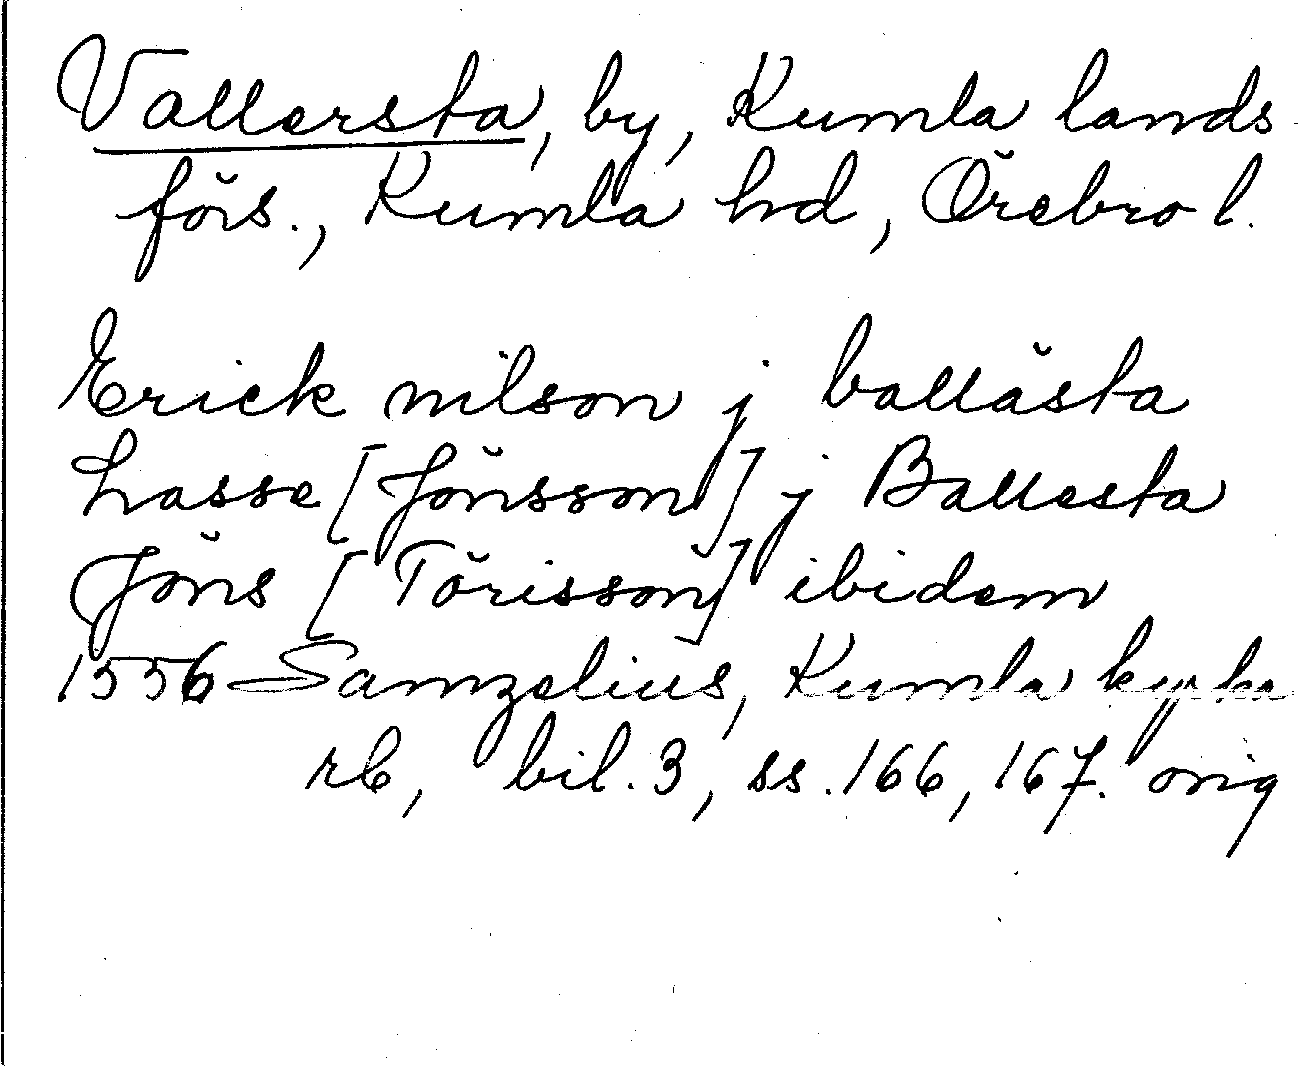 Vallersta, by, Kumla lands
förs., Kumla hd, Örebro l.
Erick nilson j ballästa
Lasse [Jönsson] j Ballesta
Jöns [Törisson] ibidem
1556 Samzelius, Kumla kyrka
rb, bil. 3, ss. 166, 167. orig